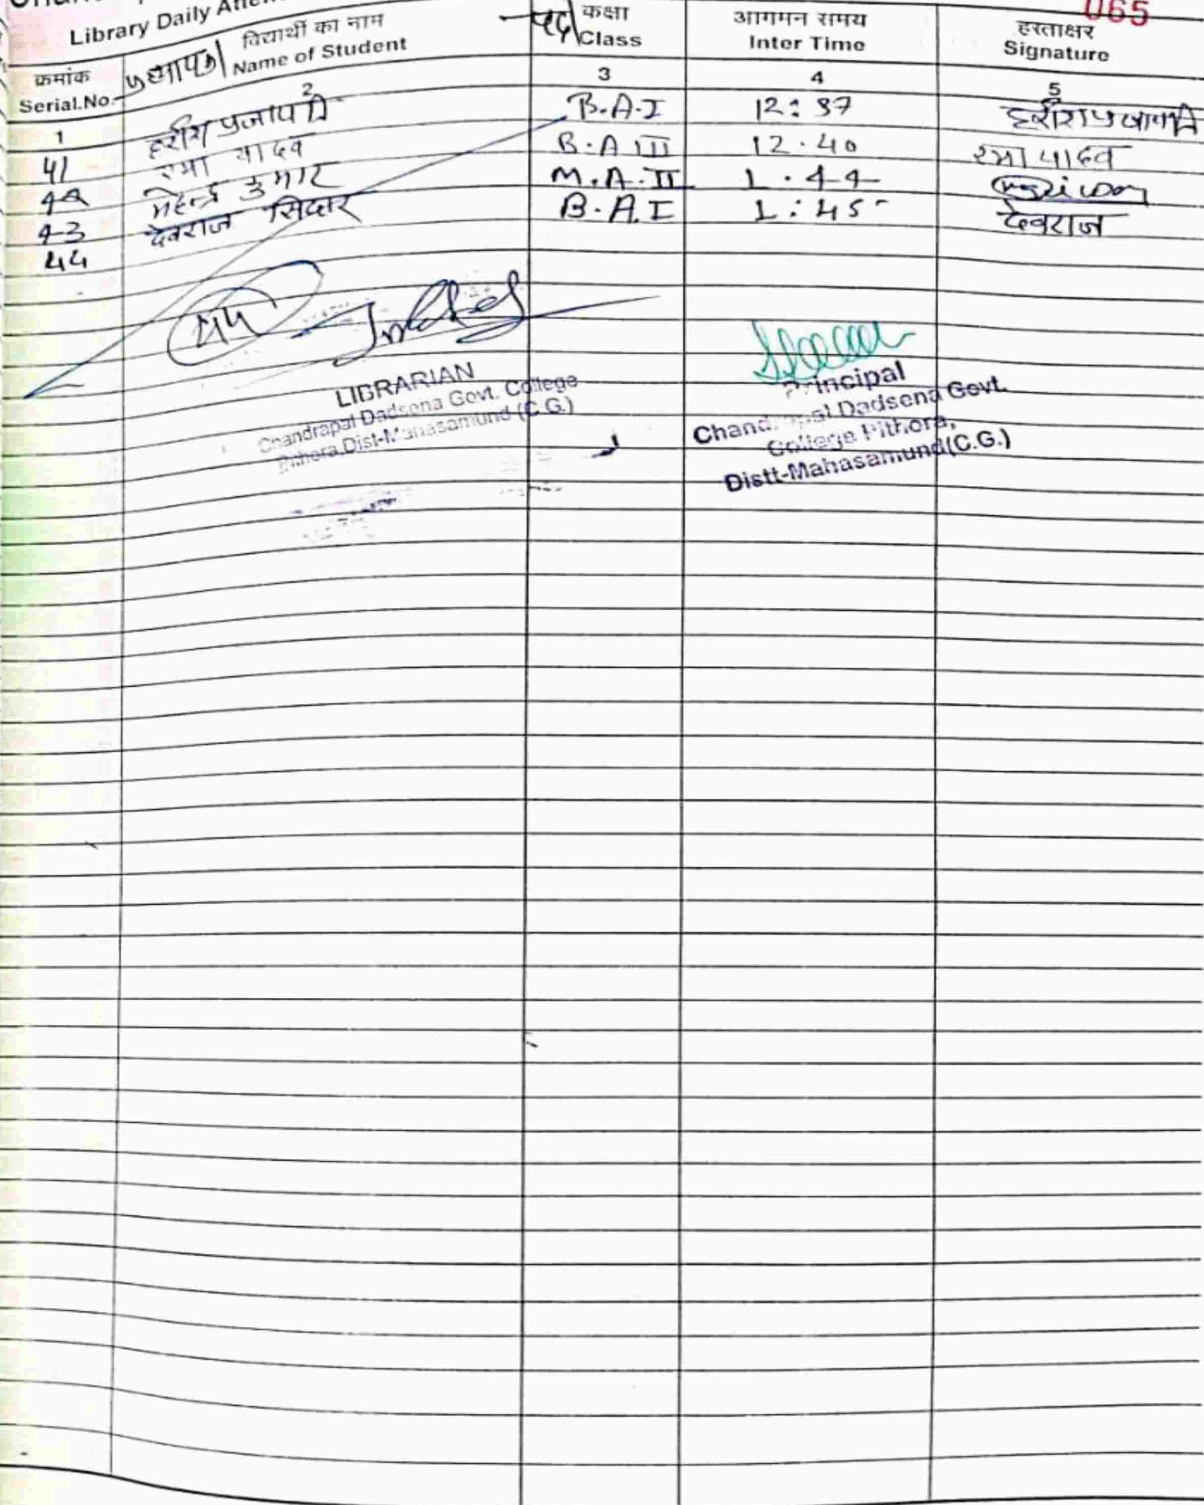 Library Daily
065
क्रमांक प्राध्यापक/ विद्यार्थी का नाम पद/ कक्षा आगमन समय हस्ताक्षर
Serial.No. Name of Student Class Inter Time Signature
1 2 3 4 5
41 हरीश प्रजापति B.A.I 12:37 हरीश प्रजापति
42 रमा यादव B.A III 12.40 रमा यादव
43 महेन्द्र कुमार M.A.II 1.44
44 देवराज सिदार B.A.I 1:45 देवराज
44
LIBRARIAN
Chandrapal Dadsena Govt. College
Pithora,Dist-Mahasamund (C.G.)
Principal
Chandrapal Dadsena Govt.
College Pithora,
Distt-Mahasamund(C.G.)